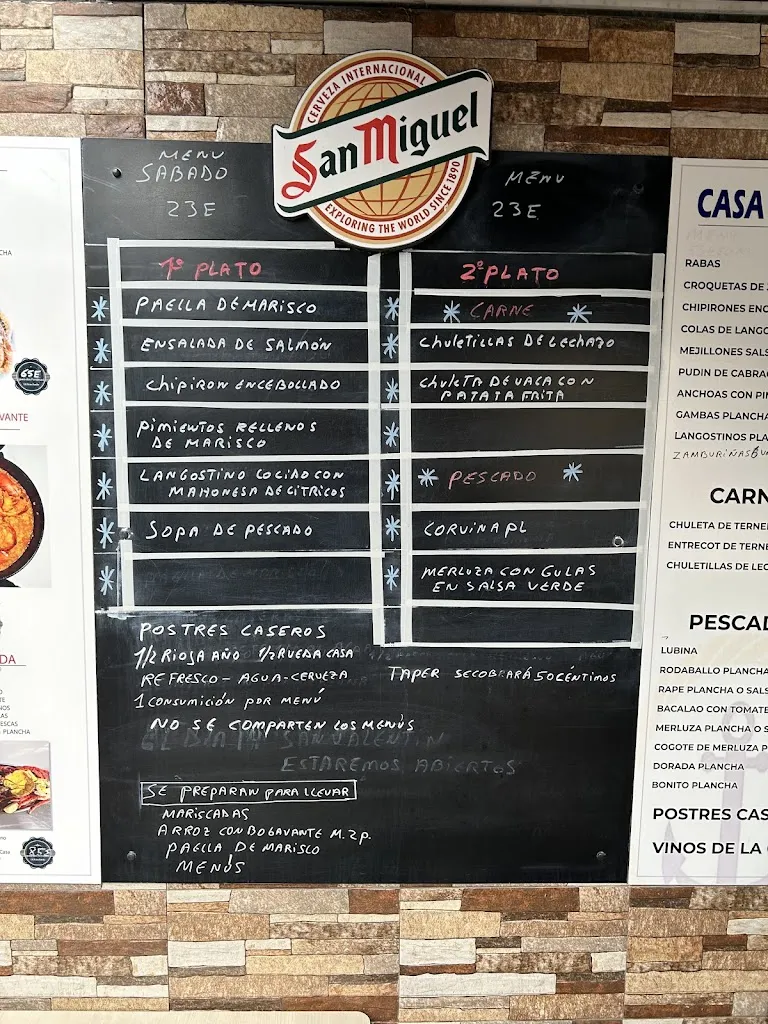 CERVEZA INTERNACIONAL
San Miguel
EXPLORING THE WORLD SINCE 1890
MENU
SABADO
23E
MENU
23E
1º PLATO
PAELLA DE MARISCO
ENSALADA DE SALMÓN
CHIPIRON ENCEBOLLADO
PIMIENTOS RELLENOS
DE MARISCO
LANGOSTINO COCIDO CON
MAHONESA DE CITRICOS
SOPA DE PESCADO
2º PLATO
CARNE
CHULETILLAS DE LECHAZO
CHULETA DE VACA CON
PATATA FRITA
PESCADO
CORVINA PL
MERLUZA CON GULAS
EN SALSA VERDE
POSTRES CASEROS
1/2 RIOJA AÑO 1/2 RUEDA CASA
REFRESCO - AGUA - CERVEZA
1 CONSUMICIÓN POR MENÚ
TAPER SE COBRARÁ 50 CÉNTIMOS
NO SE COMPARTEN LOS MENÚS
EL DIA 14 SAN VALENTIN
ESTAREMOS ABIERTOS
SE PREPARAN PARA LLEVAR
MARISCADAS
ARROZ CON BOGAVANTE M. 2 P.
PAELLA DE MARISCO
MENÚS
CHA
65E
VANTE
DA
PLANCHA
85E
CASA
RABAS
CROQUETAS DE
CHIPIRONES ENC
COLAS DE LANGO
MEJILLONES SALS
PUDIN DE CABRA
ANCHOAS CON PI
GAMBAS PLANCHA
LANGOSTINOS PLA
ZAMBURIÑAS 6 U
CARN
CHULETA DE TERNE
ENTRECOT DE TERNE
CHULETILLAS DE LEC
PESCAD
LUBINA
RODABALLO PLANCHA
RAPE PLANCHA O SALS
BACALAO CON TOMATE
MERLUZA PLANCHA O S
COGOTE DE MERLUZA P
DORADA PLANCHA
BONITO PLANCHA
POSTRES CAS
VINOS DE LA